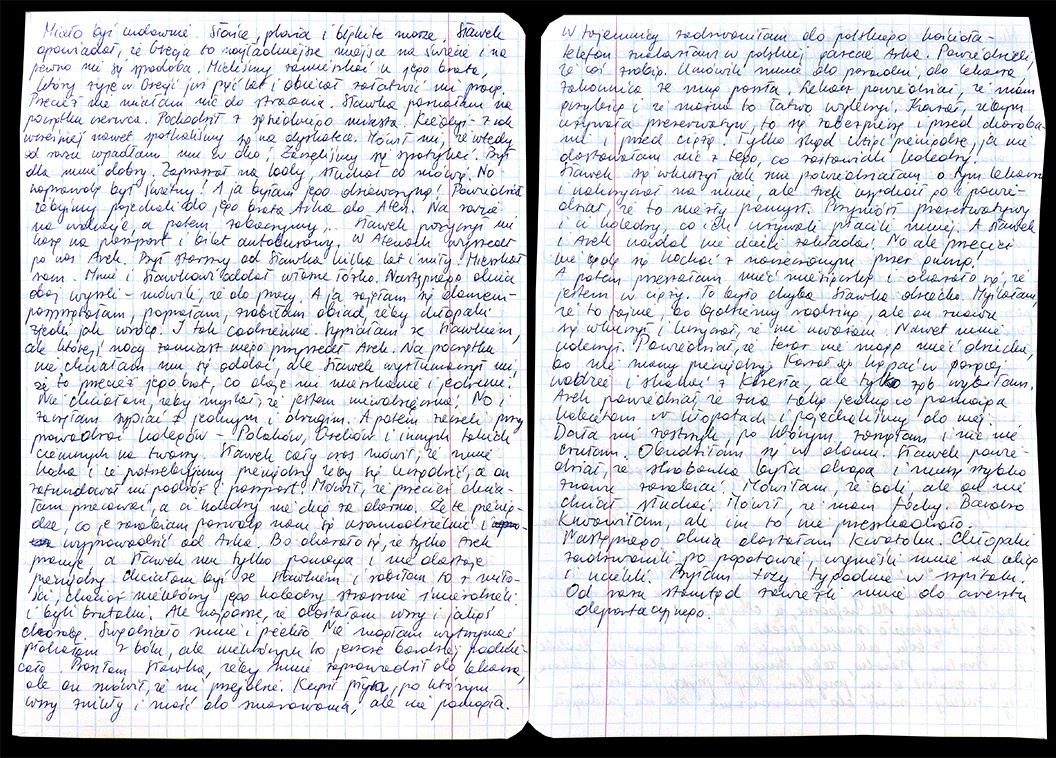 Miało być cudownie. Słońce, plaża i błękitne morze. Sławek
opowiadał, że Grecja to najładniejsze miejsce na świecie i na
pewno mi się spodoba. Mieliśmy zamieszkać u jego brata,
który żyje w Grecji już pięć lat i obiecał załatwić mi pracę.
Przecież nie miałam nic do stracenia. Sławka poznałam na
początku czerwca. Pochodził z sąsiedniego miasta. Kiedyś - rok
wcześniej nawet spotkaliśmy się na dyskotece. Mówił mi, że wtedy
od razu wpadłam mu w oko; Zaczęliśmy się spotykać. Był
dla mnie dobry. Zapraszał na lody, słuchał co mówię. No
naprawdę był świetny! A ja byłam jego dziewczyną! Powiedział
żebyśmy pojechali do jego brata Arka do Aten. Na razie
na wakacje, a potem zobaczymy... Sławek pożyczył mi
kasę na paszport i bilet autobusowy. W Atenach wyszedł
po nas Arek. Był starszy od Sławka kilka lat i miły. Mieszkał
sam. Mnie i Sławkowi oddał własne łóżko. Następnego dnia
obaj wyszli - mówili, że do pracy. A ja zajęłam się domem -
posprzątałam, poprałam, zrobiłam obiad, żeby chłopaki
zjedli jak wrócą. I tak codziennie. Sypiałam ze Sławkiem,
ale którejś nocy zamiast niego przyszedł Arek. Na początku
nie chciałam mu się oddać, ale Sławek wytłumaczył mi,
że to przecież jego brat, co daje mi mieszkanie i jedzenie!
Nie chciałam, żeby myślał, że jestem niewdzięczna! No i
zaczęłam sypiać z jednym i drugim. A potem zaczęli przy-
prowadzać kolegów - Polaków, Greków i innych takich
ciemnych na twarzy. Sławek cały czas mówił, że mnie
kocha i że potrzebujemy pieniędzy żeby się urządzić, a on
zafundował mi podróż i paszport! Mówił, że przecież chcia-
łam pracować, a a koledzy nie chcą za darmo. Że te pienią-
dze, co je zarabiam pozwolą nam się usamodzielnić i
wyprowadzić od Arka. Bo okazało się, że tylko Arek
pracuje, a Sławek mu tylko pomaga i nie dostaje
pieniędzy. Chciałam być ze Sławkiem i robiłam to z miło-
ści, chociaż niektórzy jego koledzy strasznie śmierdzieli
i byli brutalni. Ale najgorsze, że dostałam wszy i jakąś
chorobę. Swędziało mnie i piekło. Nie mogłam wytrzymać
płakałam z bólu, ale niektórych to jeszcze bardziej podnie-
cało. Prosiłam Sławka, żeby mnie zaprowadził do lekarza,
ale on mówił, że mi przejdzie. Kupił płyn, po którym
wszy znikły i maść do smarowania, ale nie pomogła.
W tajemnicy zadzwoniłam do polskiego kościoła -
telefon znalazłam w polskiej gazecie Arka. Powiedzieli,
że coś zrobią. Umówili mnie do poradni, do lekarza,
zakonnica ze mną poszła. Lekarz powiedział, że mam
grzybicę i że można to łatwo wyleczyć. Kazał, żebym
używała prezerwatyw, to się zabezpieczę i przed choroba-
mi i przed ciążą. Tylko skąd wziąć pieniądze, ja nie
dostawałam nic z tego, co zostawili koledzy!
Sławek się wkurzył jak mu powiedziałam o tym lekarzu
i nakrzyczał na mnie, ale Arek uspokoił go i powie-
dział, że to niezły pomysł. Przyniósł prezerwatywy
i ci koledzy, co ich używali płacili mniej. A Sławek
i Arek nadal nie chcieli zakładać! No ale przecież
nie będę się kochać z narzeczonym przez gumę!
A potem przestałam mieć miesiączkę i okazało się, że
jestem w ciąży. To było chyba Sławka dziecko. Myślałam,
że to fajnie, bo będziemy rodziną, ale on znowu
się wkurzył i krzyczał, że nie uważam. Nawet mnie
uderzył. Powiedział, że teraz nie mogę mieć dziecka,
bo nie mamy pieniędzy. Kazał się kąpać w gorącej
wodzie i skakać z krzesła, ale tylko ząb wybiłam.
Arek powiedział że zna taką jedną co pomaga
kobietom w kłopotach i pojechaliśmy do niej.
Dała mi zastrzyk, po którym zasnęłam i nic nie
czułam. Obudziłam się w domu. Sławek powie-
dział, że skrobanka była droga i muszę szybko
znowu zarabiać. Mówiłam, że boli, ale on nie
chciał słuchać. Mówił, że mam fochy. Bardzo
krwawiłam, ale im to nie przeszkadzało.
Następnego dnia dostałam krwotoku. Chłopaki
zadzwonili po pogotowie, wynieśli mnie na ulicę
i uciekli. Byłam trzy tygodnie w szpitalu.
Od razu stamtąd zawieźli mnie do aresztu
deportacyjnego.